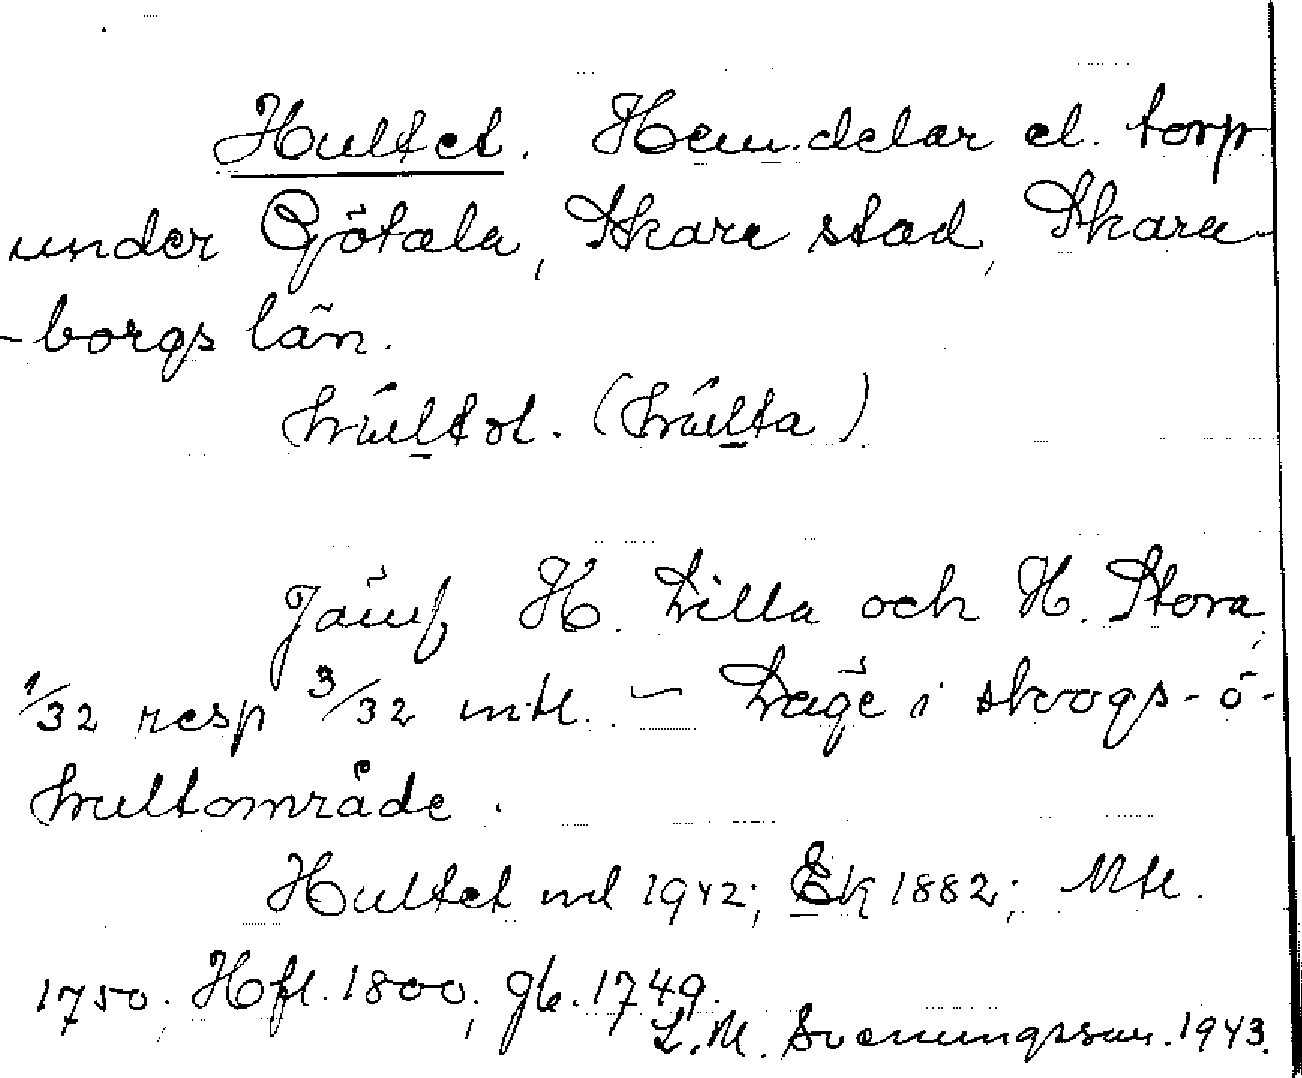 Hultet. Hem.delar el. torp
under Götala, Skara stad, Skara-
-borgs län.
hultət. (hulta)
Jämf H. Lilla och H. Stora,
1/32 resp 3/32 mtl. – Läge i skogs- o-
hultområde.
Hultet ml 1942; Ek 1882; Mtl.
1750. Hfl. 1800, gb. 1749.
L.M. Svenungsson. 1943.